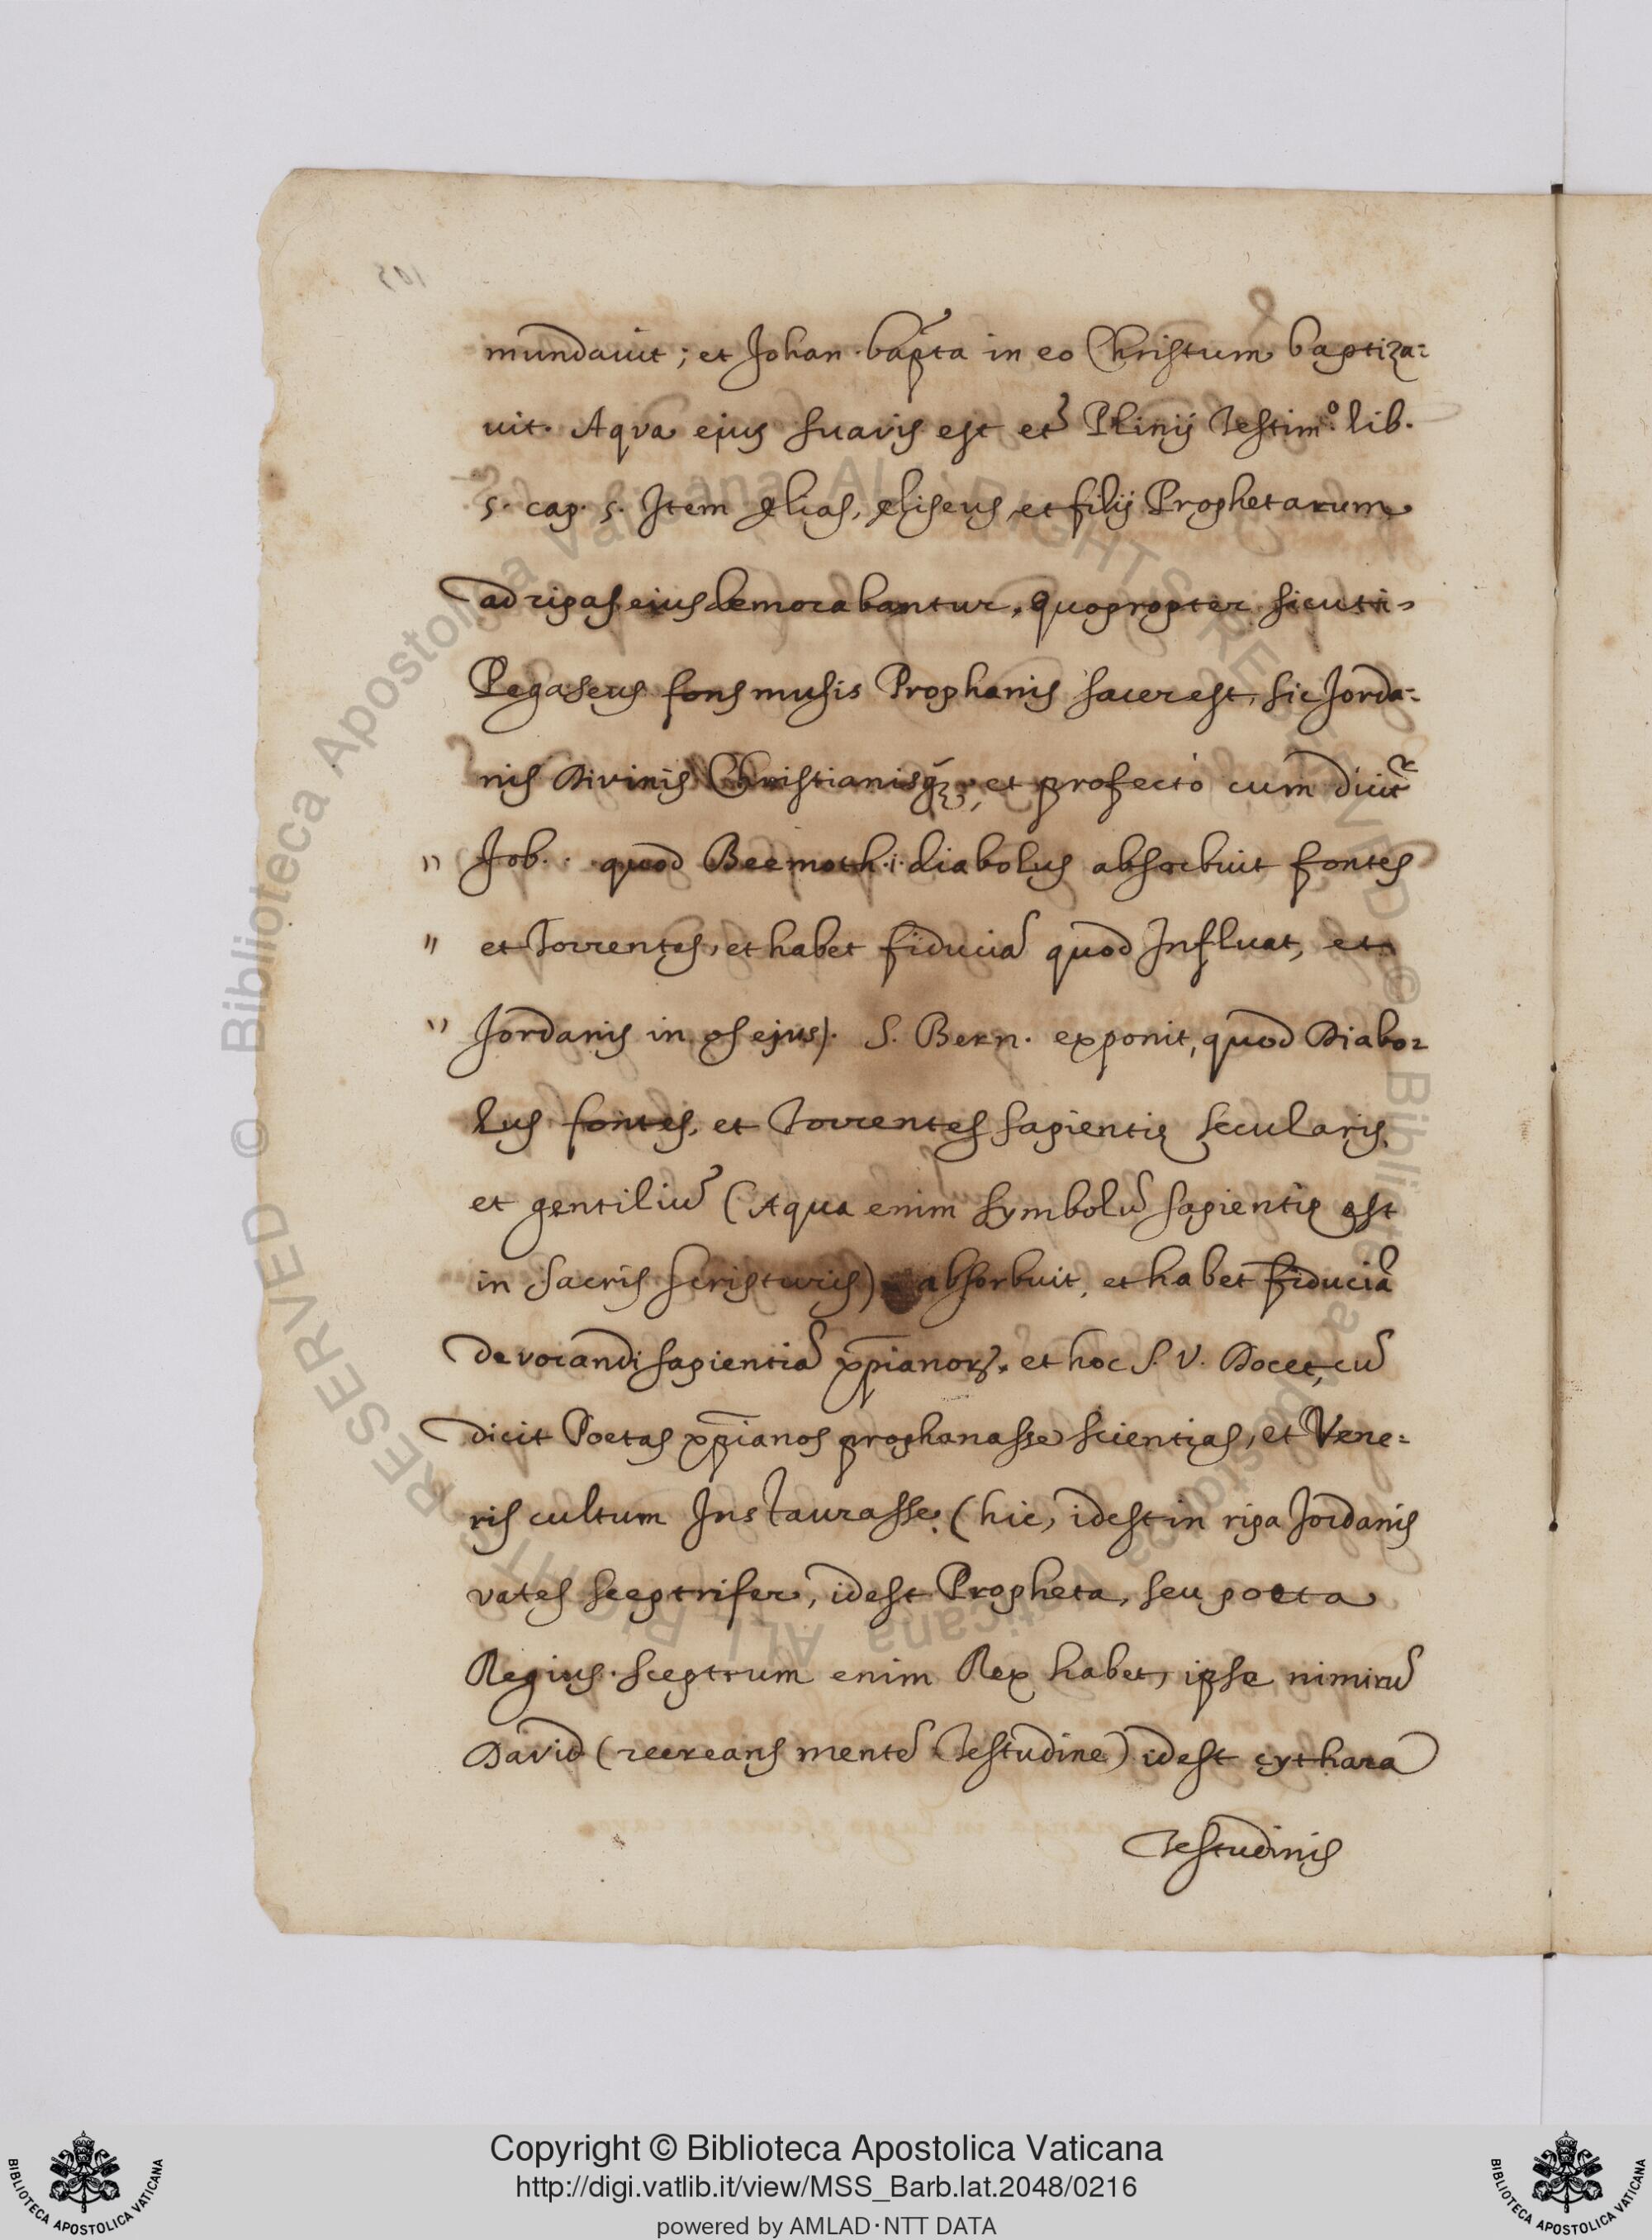 mundauit; et Johan. bap̃ta in eo Christum baptiza=
uit. Aqva ejus suavis est et̃ Plinij Testim.º lib.
5. cap. 5. Item Elias, Eliseus, et filij Prophetarum
ad ripas eius demorabantur, quopropter sicuti
Pegaseus fons musis Prophanis sacer est, sic Jorda=
nis Divinis Christianisq̃; et profectò cum dicit̃
" Job. quod Beemoth .i. diabolus absorbuit fontes
" et Torrentes, et habet fiduciã quod Influat, et
" Jordanis in os ejus). S. Bern. exponit, quod Diabo=
lus fontes, et Torrentes sapientię secularis,
et gentiliũ (Aqua enim symbolũ sapientię est
in sacris scripturis) absorbuit, et habet fiduciã
devorandi sapientiã xp̃ianorꝝ, et hoc S. V. Docet, cũ
dicit Poetas xp̃ianos prophanasse scientias, et Vene=
ris cultum Instaurasse. (hic, idest in ripa Jordanis
vates sceptrifer, idest Propheta, seu poeta
Regius. sceptrum enim Rex habet, ipse nimirũ
David (recreans mentẽ Testudine) idest cythara
Testudinis
Copyright © Biblioteca Apostolica Vaticana
http://digi.vatlib.it/view/MSS_Barb.lat.2048/0216
powered by AMLAD·NTT DATA
BIBLIOTECA APOSTOLICA VATICANA
BIBLIOTECA APOSTOLICA VATICANA